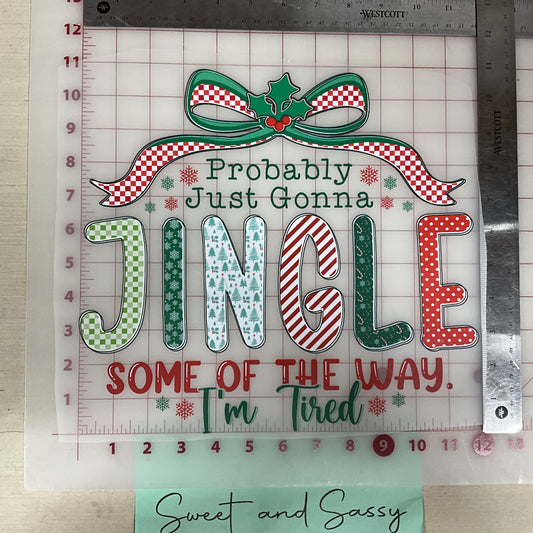 WESTCOTT
WESTCOTT
12
11
10
9
8
7
6
5
4
3
2
1
Probably
Just Gonna
JINGLE
SOME OF THE WAY.
I'm Tired
1 2 3 4 5 6 7 8 9 10 11 12 13
Sweet and Sassy